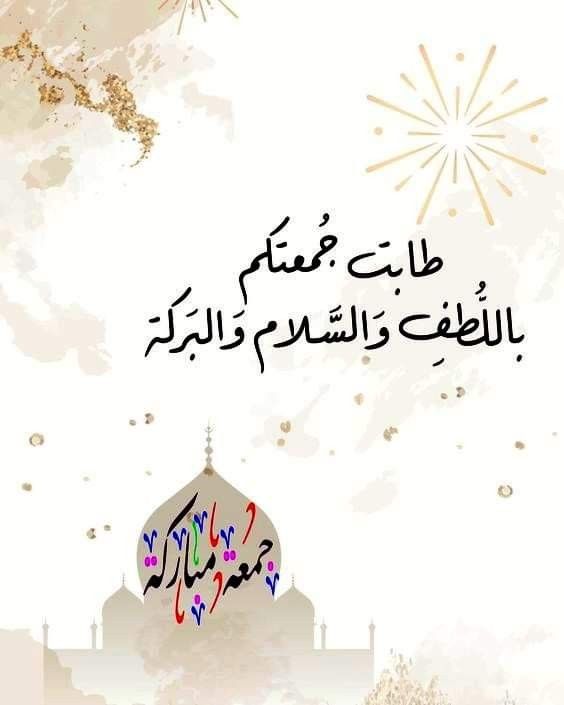 طابت جُمعتكم
باللُّطفِ وَالسَّلام وَالبَركة
جمعة مباركة